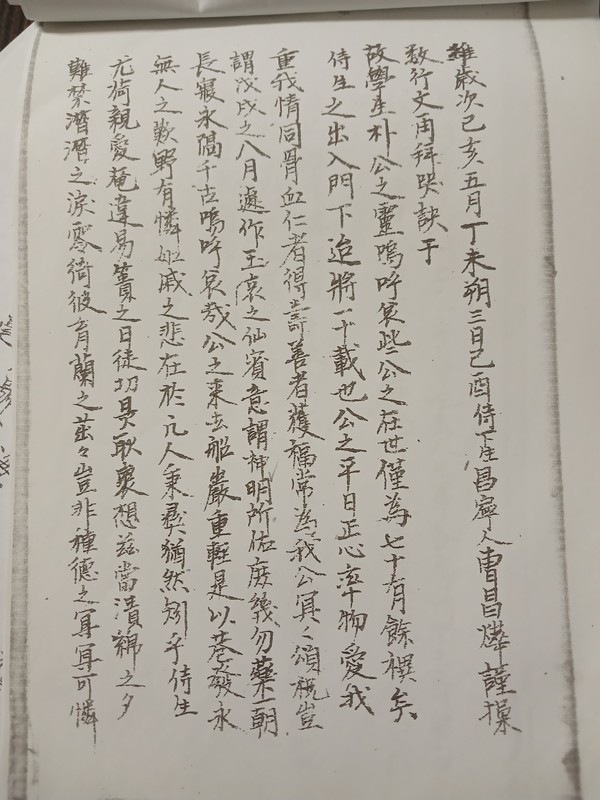 維歲次己亥五月丁未朔三日己酉侍生昌寧人曺昌燁謹操
数行文再拜哭訣于
故學生朴公之靈嗚呼哀些公之在世僅為七十有餘禩矣
侍生之出入門下迨將一十載也公之平日正心率物愛我
重我情同骨血仁者得壽善者獲福常為我公冥々頌祝豈
謂戊戌之八月遽作玉京之仙賓意謂神明所佑庶幾勿藥一朝
長寢永隔千古嗚呼哀哉公之來去船嚴重輕是以巷永
無人之歎野有憐姻戚之悲在於凢人秉彛猶然矧乎侍生
尤荷親愛奄違易簀之日徒切臭耿裹想玆當漬綿之夕
難禁潛潛之淚零倚彼育蘭之茁々豈非種德之冥冥可憐